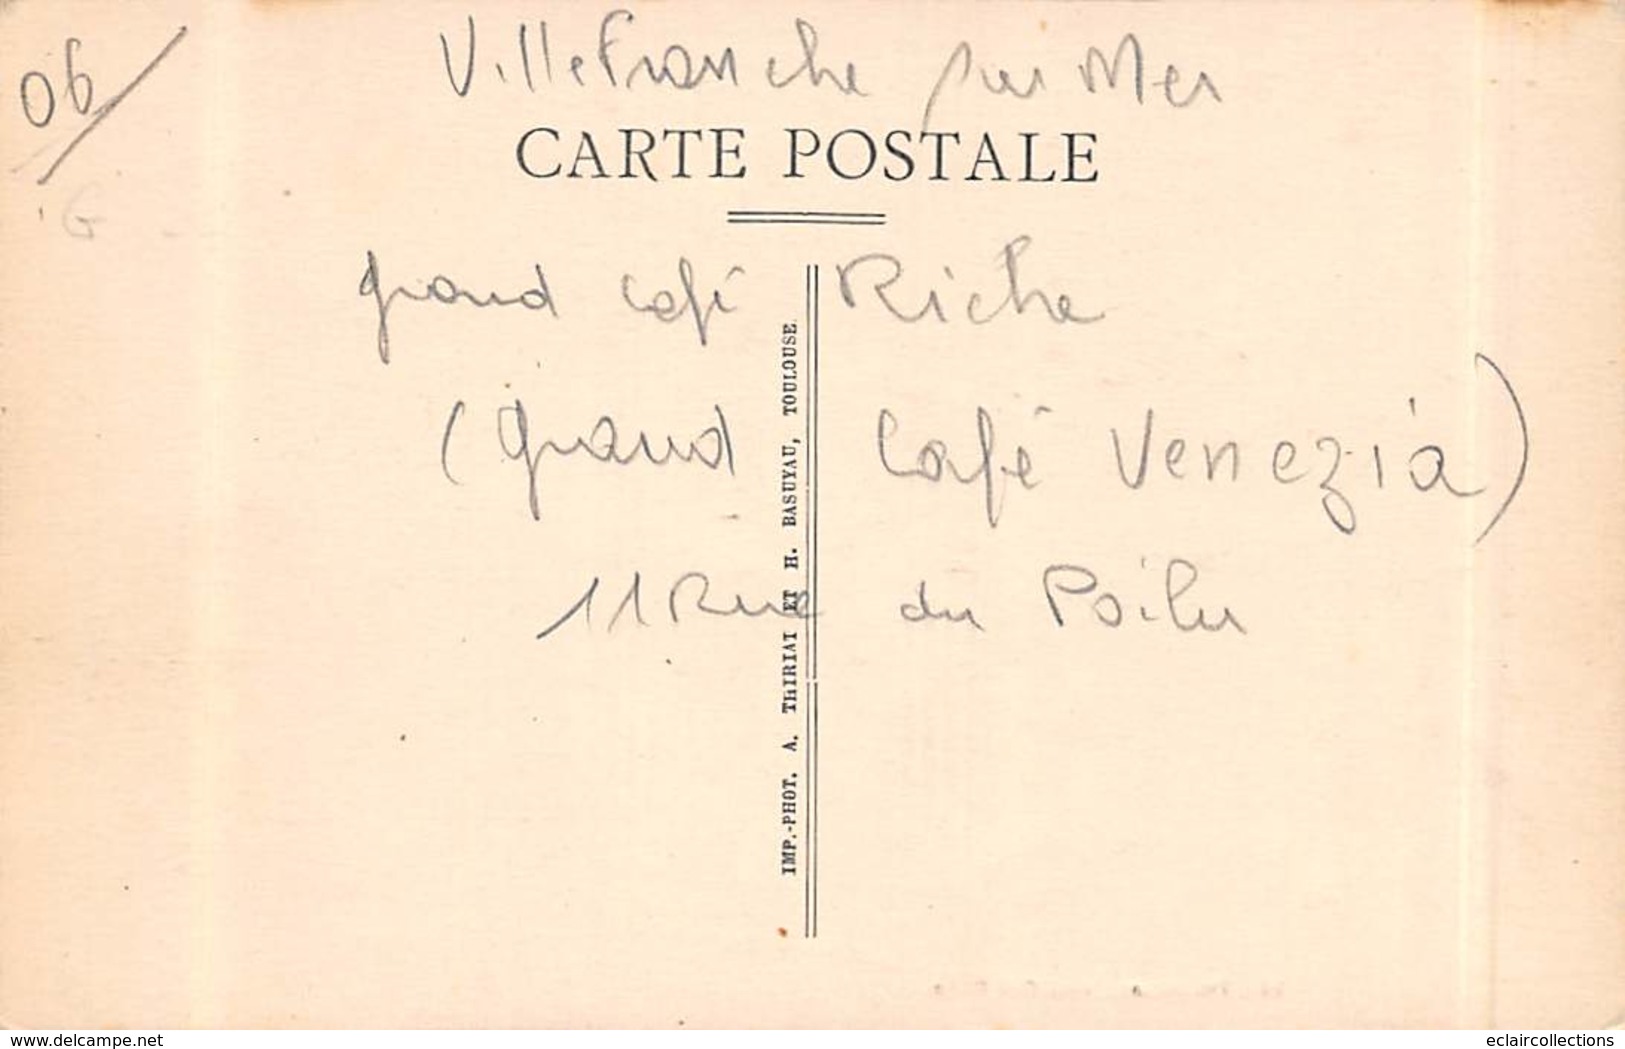 06
VilleFranche sur Mer
CARTE POSTALE
G
grand café Riche
(grand Café Venezia)
11 Rue du Poilu
IMP.-PHOT. A. THIRIAT ET H. BASUYAU, TOULOUSE.
delcampe.net
eclaircollections